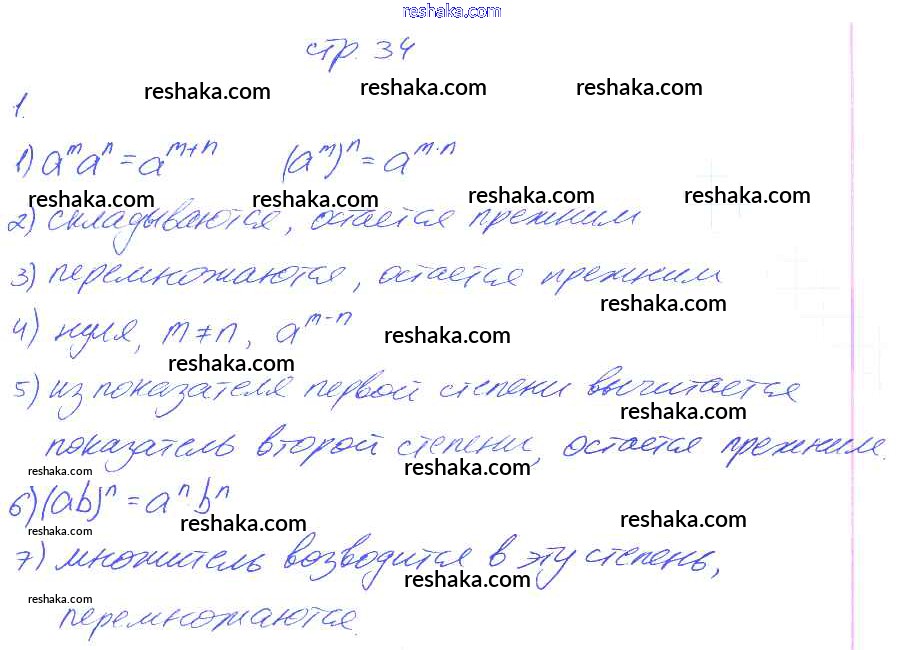 reshaka.com
стр. 34
reshaka.com reshaka.com reshaka.com
1.
1) aᵐaⁿ = aᵐ⁺ⁿ (aᵐ)ⁿ = aᵐ·ⁿ
reshaka.com reshaka.com reshaka.com reshaka.com
2) складываются, остается прежним
3) перемножаются, остается прежним
reshaka.com
4) нуля, m ≠ n, aᵐ⁻ⁿ
reshaka.com
reshaka.com
5) из показателя первой степени вычитается
reshaka.com
показатель второй степени, остается прежним.
reshaka.com reshaka.com
6) (ab)ⁿ = aⁿ·bⁿ
reshaka.com reshaka.com
reshaka.com
7) множитель возводится в эту степень,
reshaka.com
reshaka.com
перемножаются.